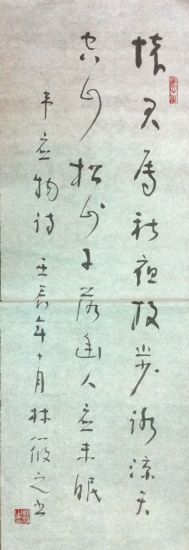 懷君屬秋夜散步詠涼天
空山松子落幽人應未眠
韋應物詩 壬辰年十月林筱之書